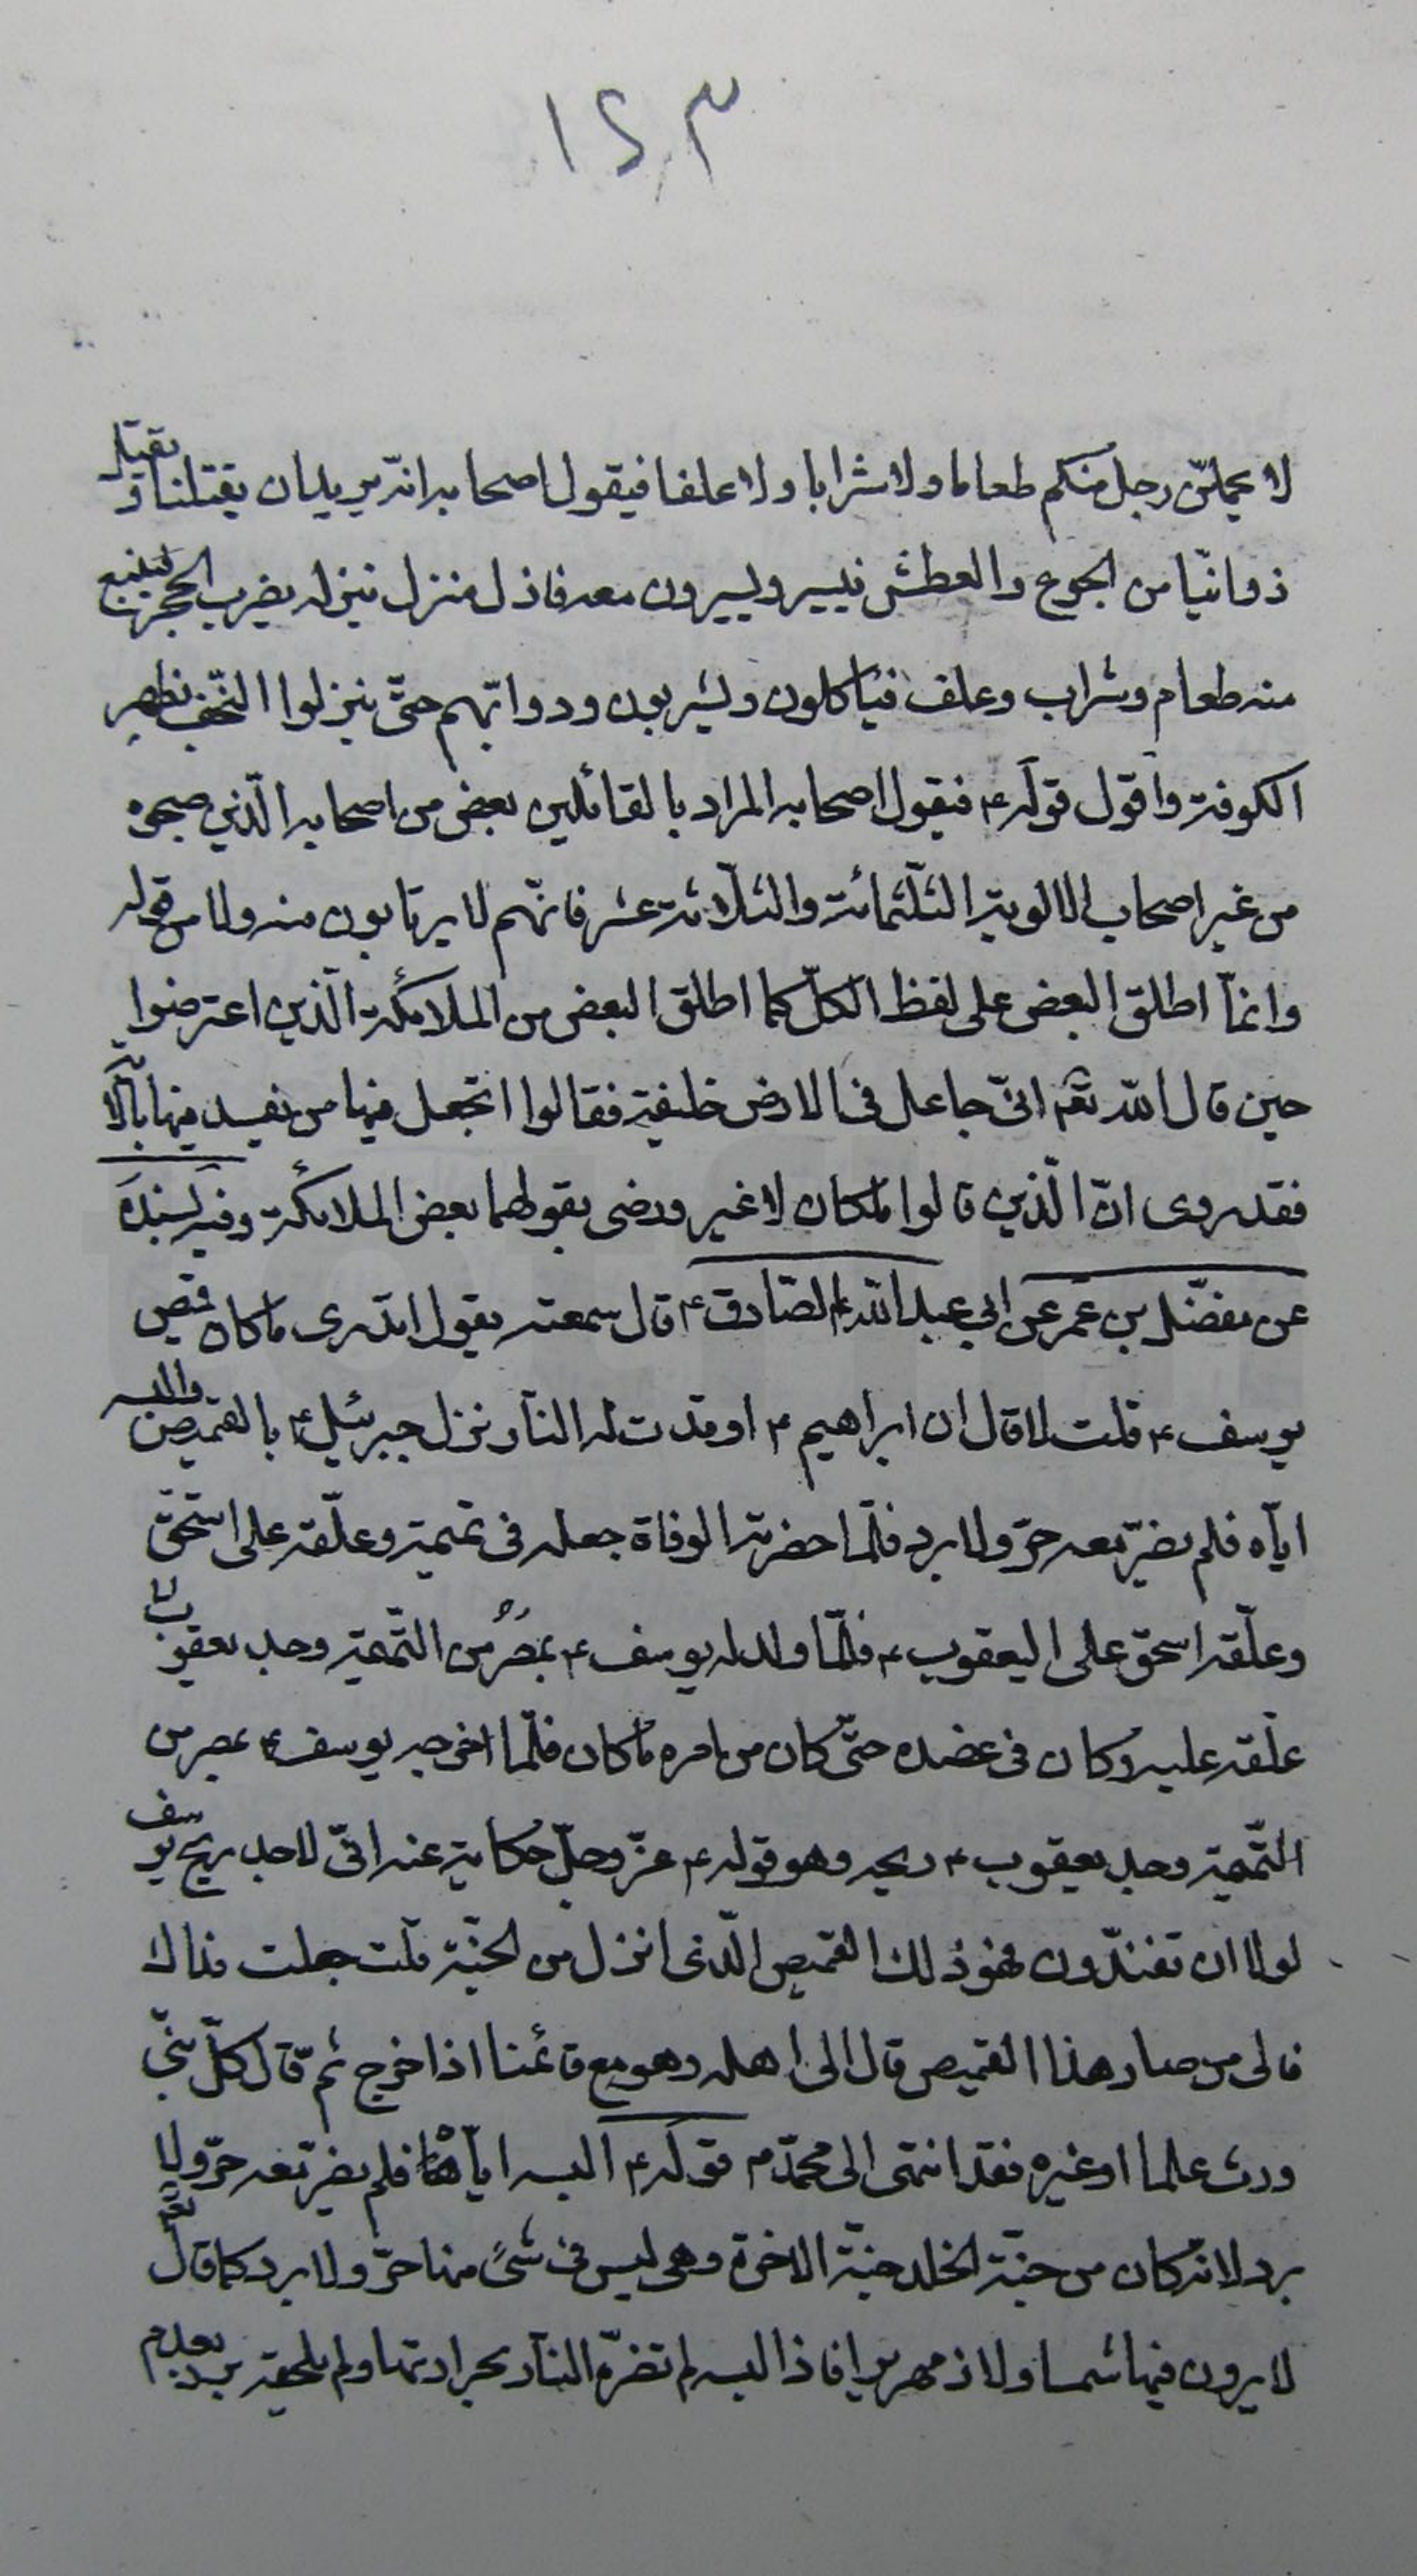 ١٢٣
لا يحملنّ رجل منكم طعاما ولا شرابا ولا علفا فيقول اصحابه انّه يريد ان يقتلنا و يقتل
دوابّنا من الجوع والعطش فيسير ويسيرون معه فاذل منزل ينزله يضرب الحجر فينبع
منه طعام وشراب وعلف فياكلون ويشربون ودوابّهم حتّى ينزلوا النّجف بظهر
الكوفة واقول قوله ع فيقول اصحابه المراد بالقائلين بعض من اصحابه الّذين صحبوه
من غير اصحاب الالوية الثّلثمائة والثّلاثة عشر فانّهم لا يرتابون منه ولا من قوله
وانمّا اطلق البعض على لفظ الكلّ كما اطلق البعض من الملائكة الّذين اعترضوا
حين قال الله تعم انّى جاعل فى الارض خليفة فقالوا اتجعل فيها من يفسد فيها الآية
فقد روى انّ الّذين قالوا ملكان لا غير ورضى بقولهما بعض الملائكة وفيه بسنده
عن مفضّل بن عمر عن ابي عبد الله الصّادق ع قال سمعته يقول اتدرى ما كان قميص
يوسف ع قلت لا قال ان ابراهيم ع اوقدت له النّار نزل جبرئيل ع بالقميص والبسه
ايّاه فلم يضرّ معه حرّ ولا برد فلمّا حضرته الوفاة جعله فى تميمة وعلّقه على اسحق
وعلّقه اسحق على اليعقوب ع فلمّا ولد له يوسف ع من التّميمة وجد يعقوب
علّقه عليه وكان فى عضده حتّى كان من امره ما كان فلمّا اخرجه يوسف ع بمصر من
التّميمة وجد يعقوب ع ريحه وهو قوله ع عزّ وجلّ حكاية عنه انّى لاجد ريح يوسف
لولا ان تفنّدون فهو ذلك القميص الّذى انزل من الجنّة قلت جعلت فداك
فالى من صار هذا القميص قال الى اهله وهو مع قائمنا اذا خرج ثمّ قال كلّ نبىّ
ورث علما او غيره فقد انتمى الى محمّد م قوله ع البسه ايّاه فلم يضرّ معه حرّ ولا
برد لانّه كان من جنّة الخلد جنّة الاخرة وهى ليس فى شىء منها حرّ ولا برد كما قال تعم
لا يرون فيها شمسا ولا زمهريرا فاذا لبسه لم تضرّه النّار بحرارتها ولم يلحقه برد بعدم